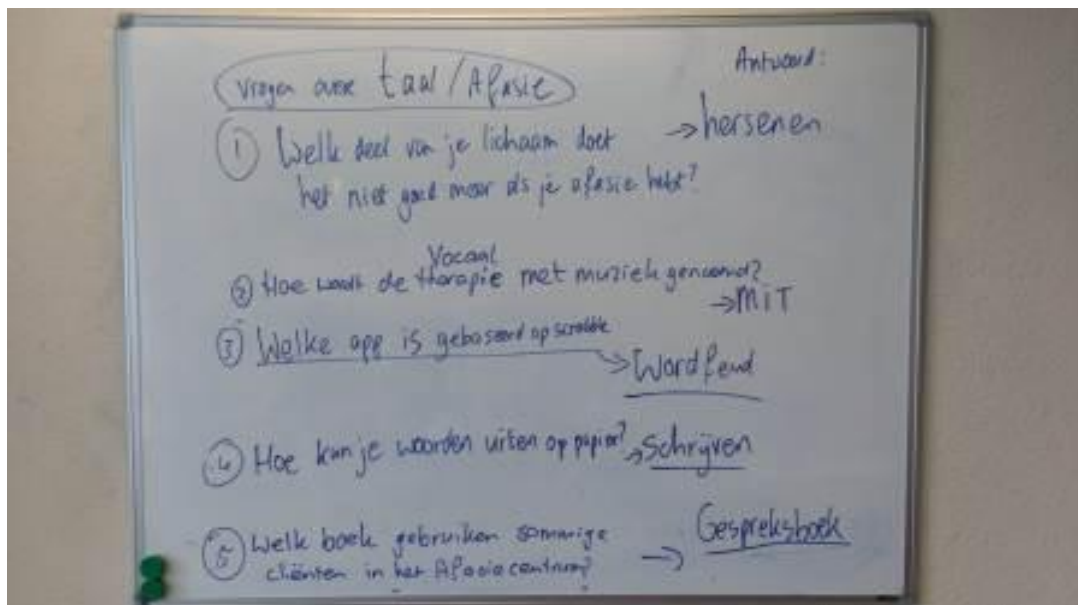 Vragen over taal/Afasie
Antwoord:
① Welk deel van je lichaam doet
het niet goed meer als je afasie hebt?
→ hersenen
Vocaal
② Hoe wordt de therapie met muziek genoemd?
→ MIT
③ Welke app is gebaseerd op scrabble
→ Wordfeud
④ Hoe kun je woorden uiten op papier? → Schrijven
⑤ Welk boek gebruiken sommige
cliënten in het Afasiecentrum?
→ Gespreksboek